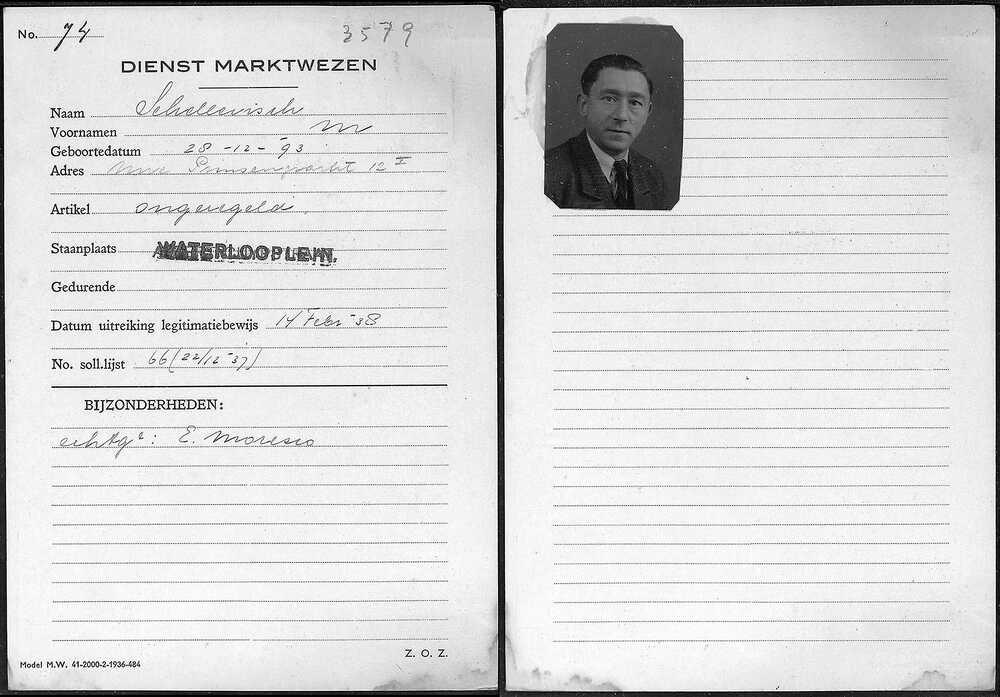 No. 74 3579
DIENST MARKTWEZEN
Naam Schelvisch
Voornamen M
Geboortedatum 28-12-93
Adres 12 I
Artikel ongeregeld.
Staanplaats WATERLOOPLEIN.
Gedurende
Datum uitreiking legitimatiebewijs 14 Febr-38
No. soll.lijst 66 (22/12-37)
BIJZONDERHEDEN:
echtge: E. Moresco
Z. O. Z.
Model M.W. 41-2000-2-1936-484